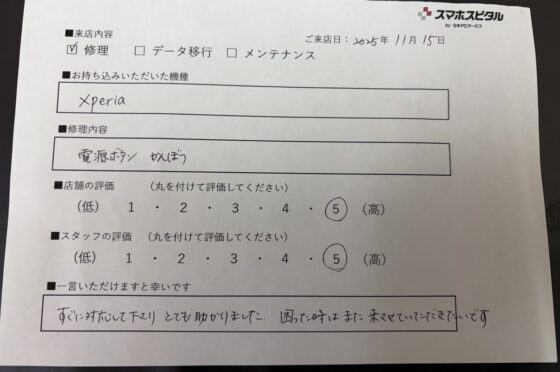 スマホスピタル
by 日本PCサービス
■来店内容
ご来店日：2025年 11月 15日
☑ 修理 □ データ移行 □ メンテナンス
■お持ち込みいただいた機種
Xperia
■修理内容
電源ボタン かんぼつ
■店舗の評価 （丸を付けて評価してください）
（低） 1 ・ 2 ・ 3 ・ 4 ・ 5 （高）
■スタッフの評価 （丸を付けて評価してください）
（低） 1 ・ 2 ・ 3 ・ 4 ・ 5 （高）
■一言いただけますと幸いです
すぐに対応して下さり とても助かりました. 困った時は また 来させていただきたいです.